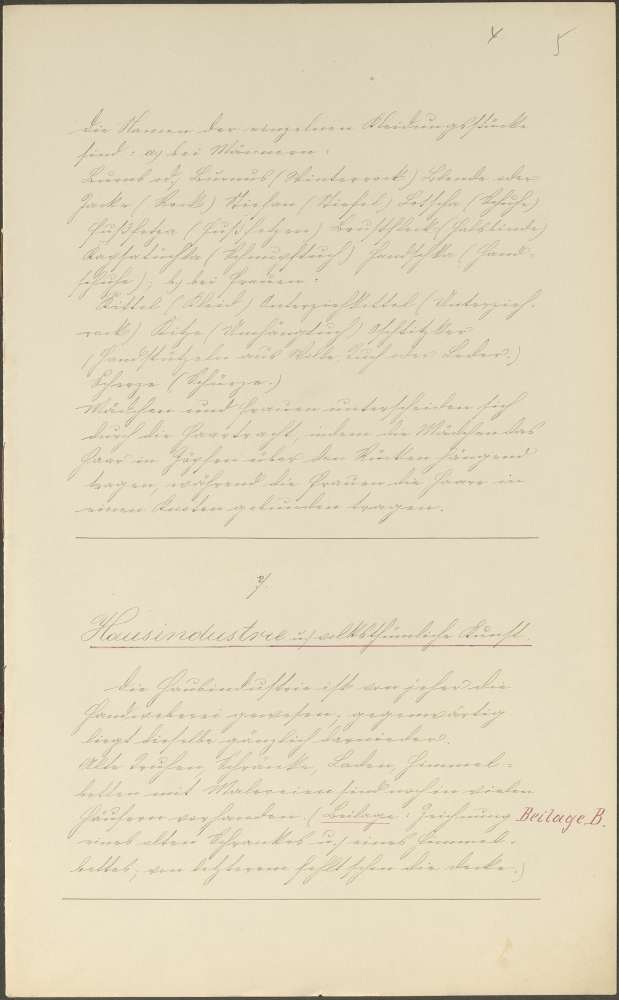 4 5
Die Namen der einzelnen Kleidungsstücke
sind: a) bei Männern:
Burnus (Winterrock) Blende oder
Jacke (Rock) Stiefel) (Schuhe)
(Fußfetzen) Brustfleck (Halsbinde)
(Schnupftuch) Handschka (Hand-
schuhe); b) bei Frauen:
Kittel (Kleid) Unterziehkittel (Unterzieh-
rock) (Umhängtuch)
(Handstützeln aus Wolle, Tuch oder Leder.)
Scherze (Schürze.)
Mädchen und Frauen unterscheiden sich
durch die Haartracht, indem die Mädchen das
Haar in Zöpfen über den Rücken hängend
tragen, während die Frauen die Haare in
einen Knoten gebunden tragen.
7.
Hausindustrie u. volksthümliche Kunst.
Die Hausindustrie ist von jeher die
Handweberei gewesen; gegenwärtig
liegt dieselbe gänzlich darnieder.
Alte Truhen, Schränke, Laden, Himmel-
betten mit Malereien sind noch in vielen
Häusern vorhanden. (Beilage: Zeichnung Beilage B.
eines alten Schrankes u. eines Himmel-
bettes; von letzterem fehlt schon die Decke.)